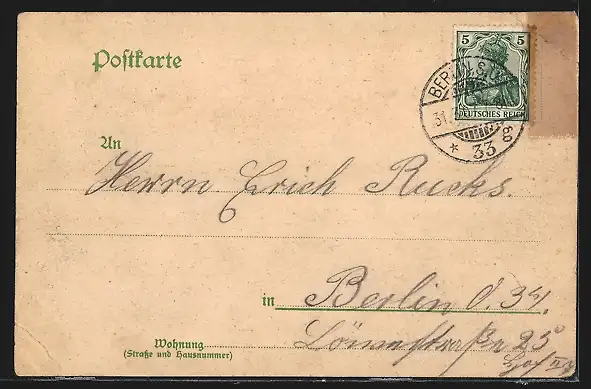 Postkarte
5 5
DEUTSCHES REICH
BERLIN
31
* 33
An
Herrn Erich Rucks.
in Berlin O. 34,
Wohnung
(Straße und Hausnummer)